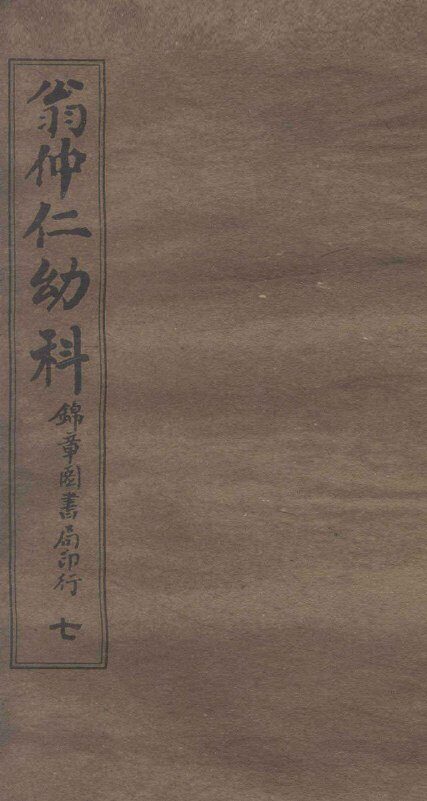 翁仲仁幼科
錦章圖書局印行
七